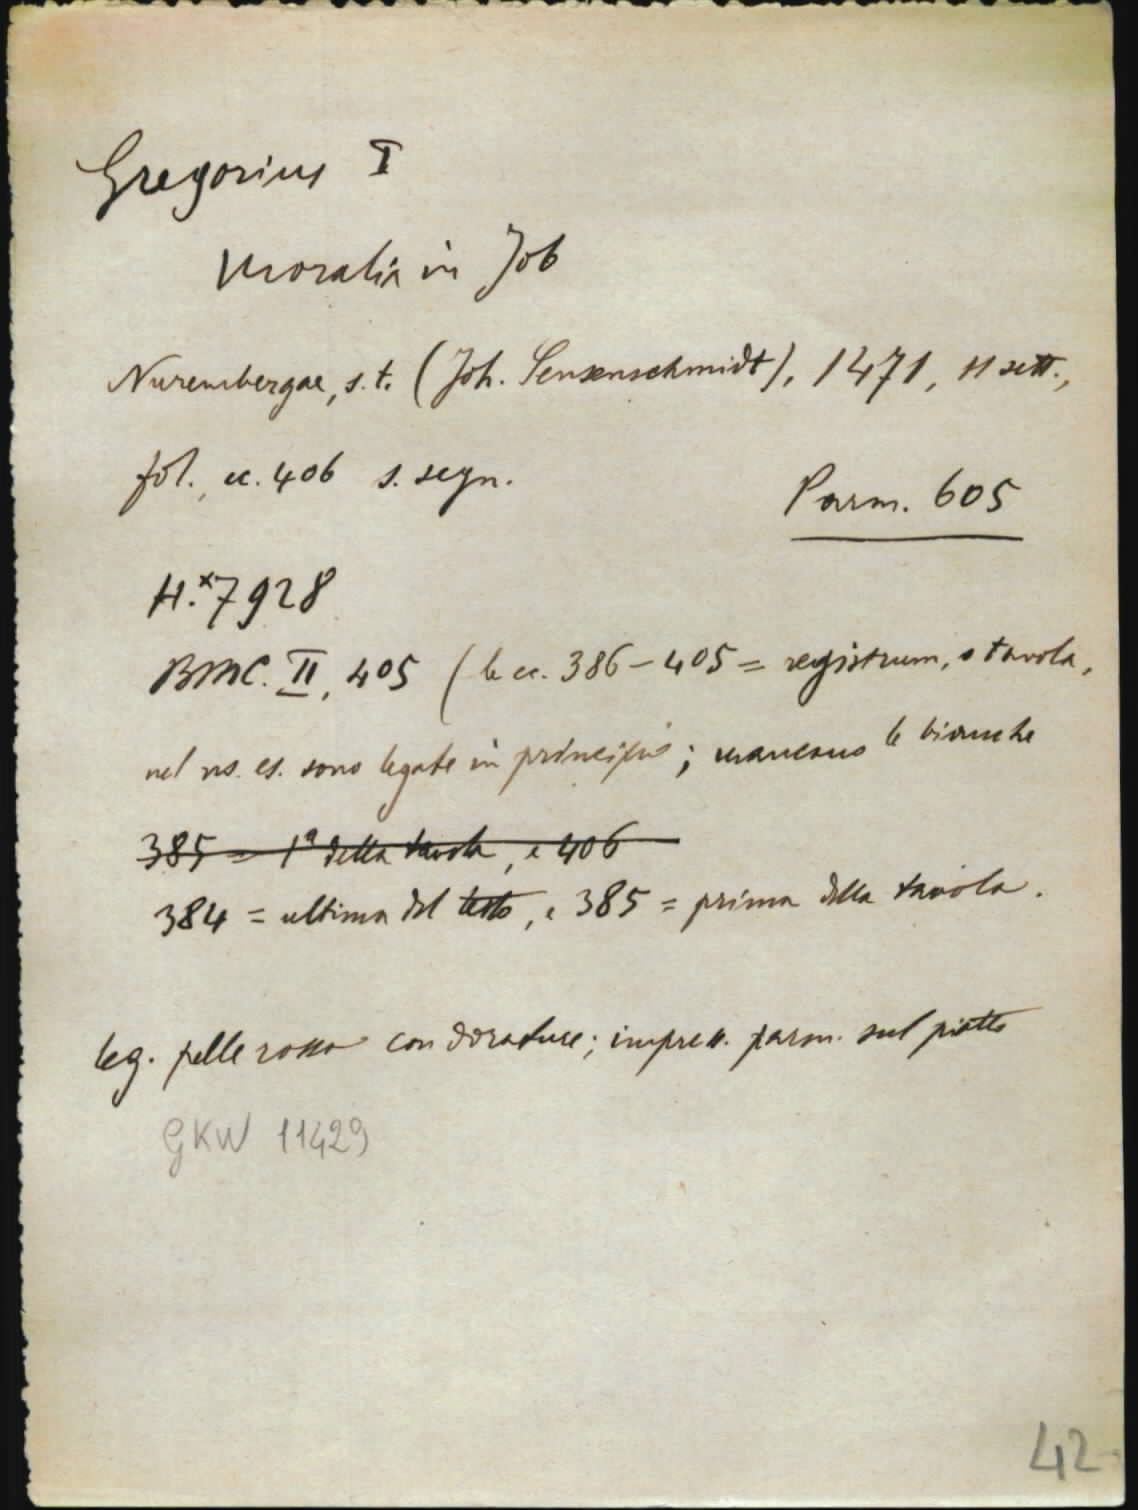 Gregorius I
Moralia in Job
Nurembergae, s.t. (Joh. Sensenschmidt), 1471, 11 sett.,
fol., cc. 406 s. segn.
Parm. 605
H.*7928
BMC. II, 405 (le cc. 386-405 = registrum, o tavola,
nel ns. es. sono legate in principio; mancano le bianche
385 = 1ª della tavola, e 406
384 = ultima del testo, e 385 = prima della tavola.
leg. pelle rossa con dorature; impress. parm. sul piatto
GKW 11429
42